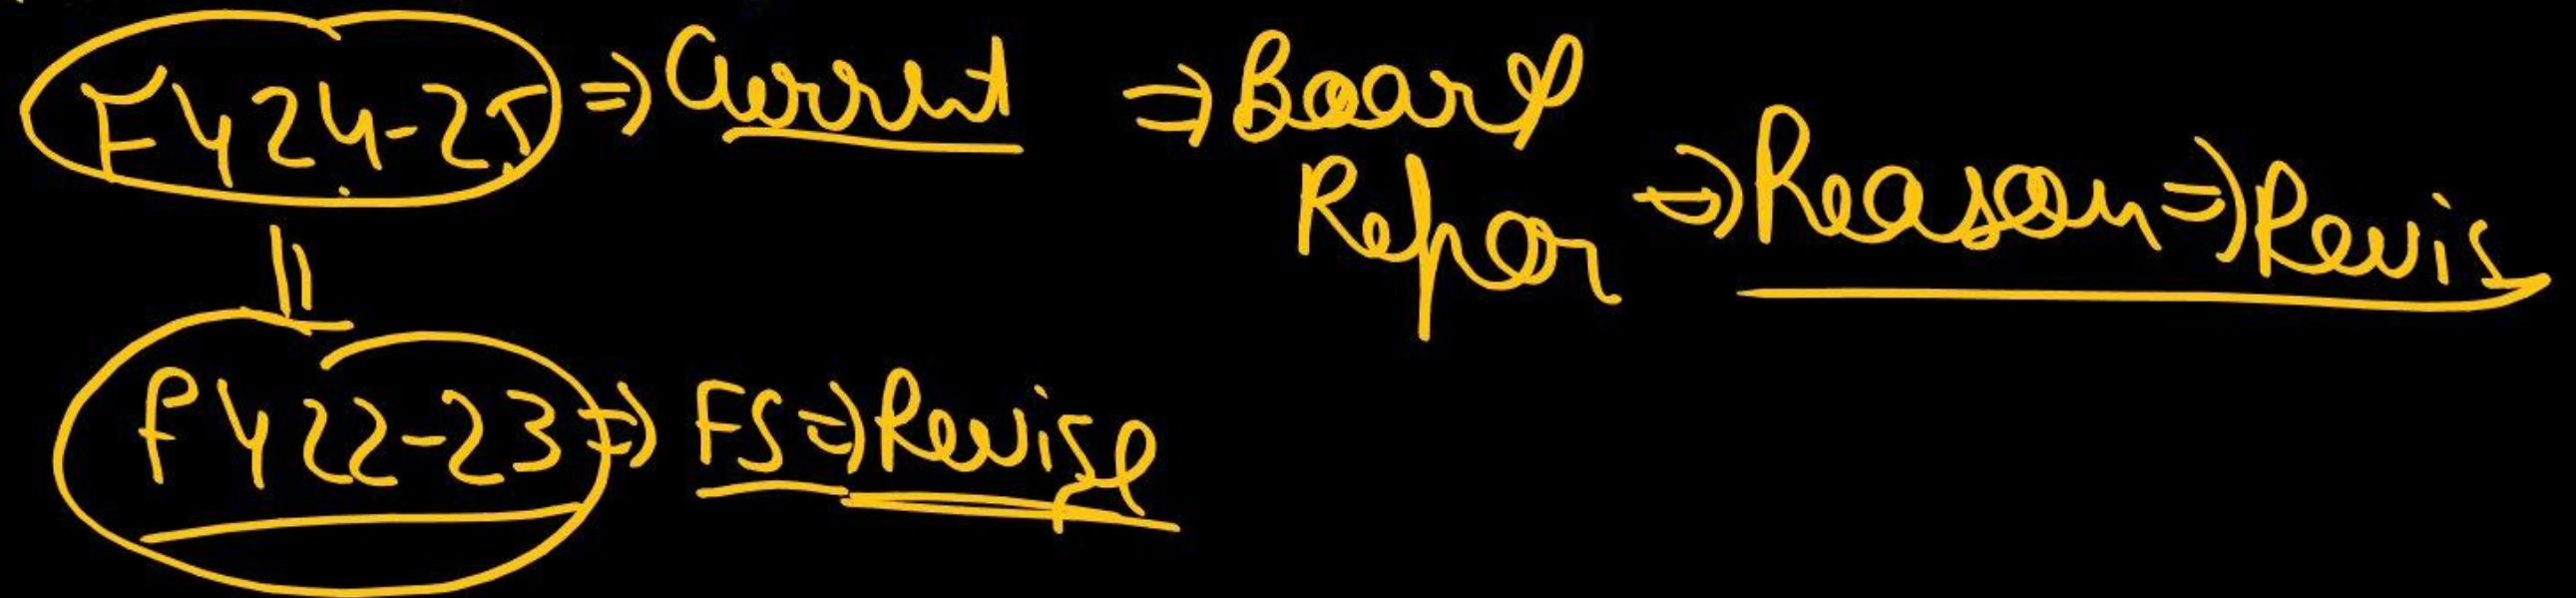 FY 24-25 => Current => Board
Repor => Reason => Revis
FY 22-23 => FS => Revise